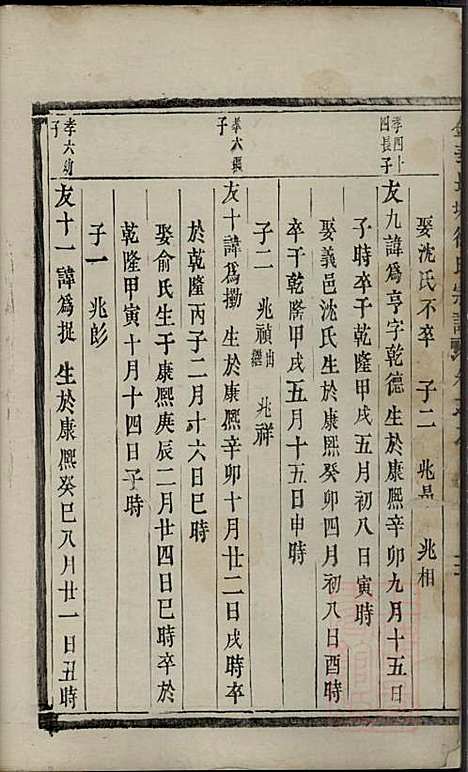 娶沈氏不卒 子二 兆昺 兆相
孝四十四長子
友九諱爲亨字乾德生於康熙辛卯九月十五日
子時卒于乾隆甲戌五月初八日寅時
娶義邑沈氏生于康熙癸卯四月初八日酉時
卒于乾隆甲戌五月十五日申時
子二 兆禎出繼 兆祥
孝六長子
友十諱爲勷 生於康熙辛卯十月廿二日戌時卒
於乾隆丙子二月廿六日巳時
娶俞氏生于康熙庚辰二月廿四日巳時卒於
乾隆甲寅十月十四日子時
子一 兆彭
孝六幼子
友十一 諱爲捉 生於康熙癸巳八月廿一日丑時